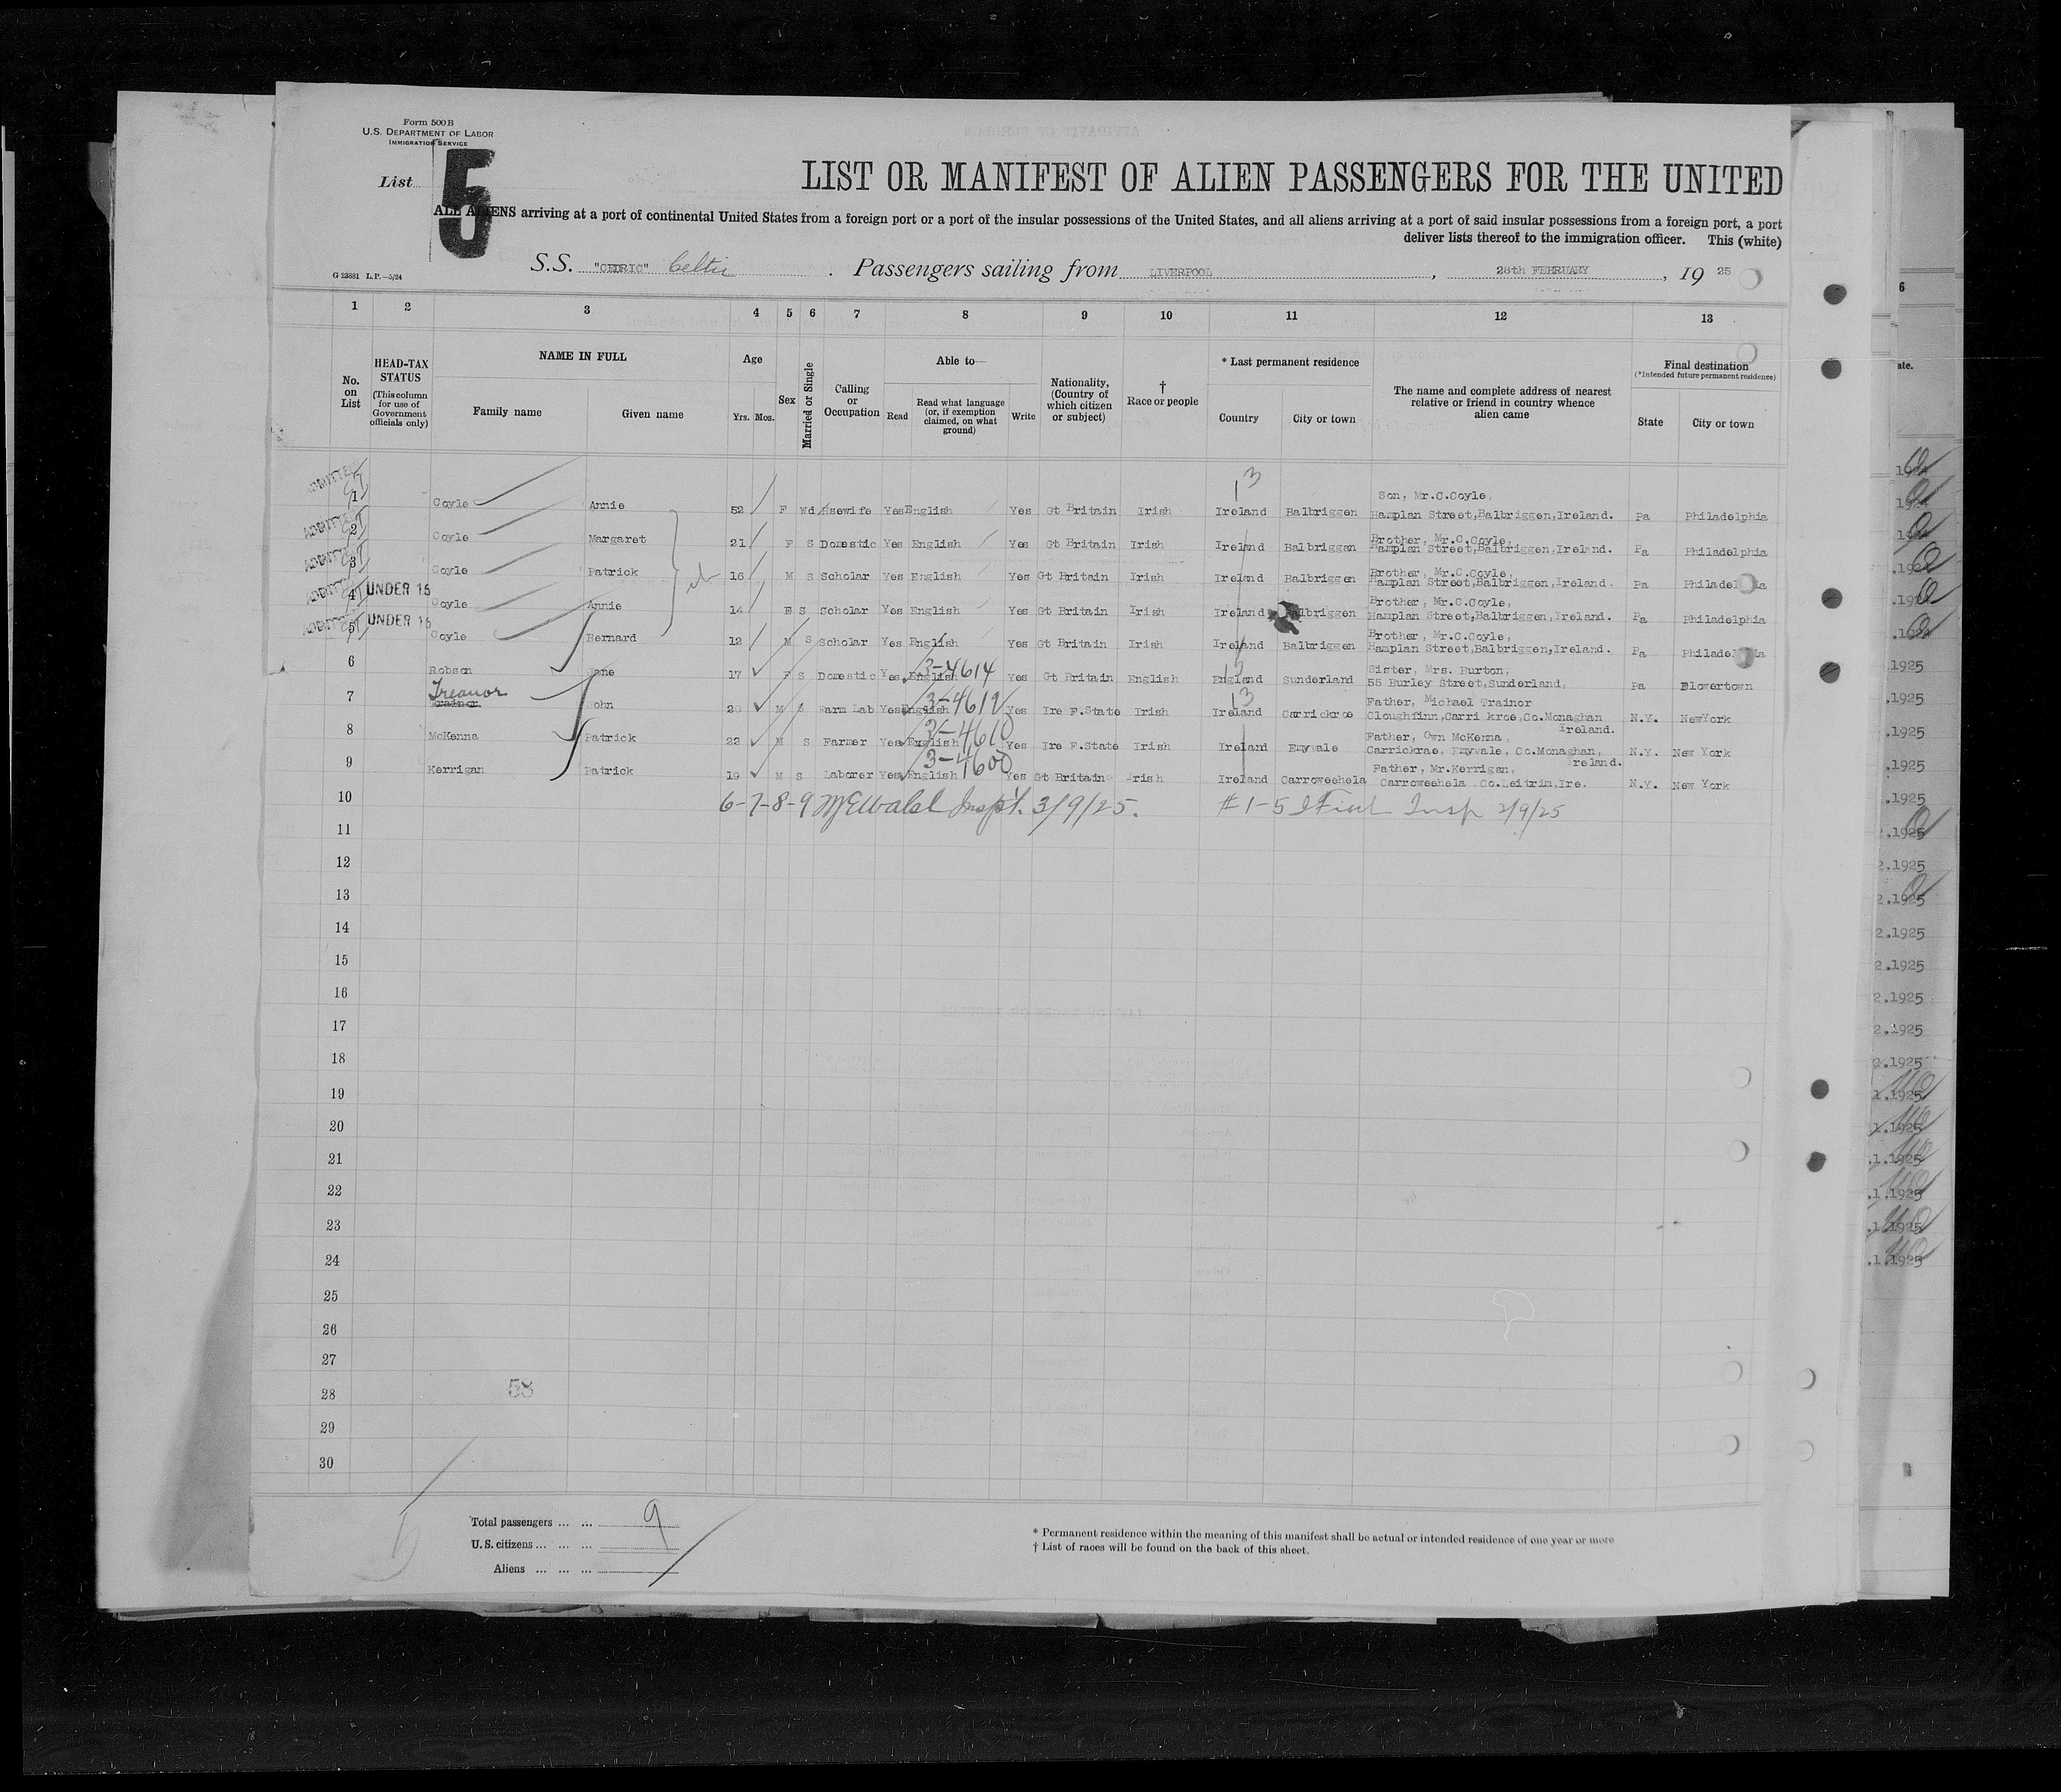 Form 500B
U.S. DEPARTMENT OF LABOR
IMMIGRATION SERVICE
List 5
LIST OR MANIFEST OF ALIEN PASSENGERS FOR THE UNITED
ALL ALIENS arriving at a port of continental United States from a foreign port or a port of the insular possessions of the United States, and all aliens arriving at a port of said insular possessions from a foreign port, a port
deliver lists thereof to the immigration officer. This (white)
S.S. "CEDRIC" Celtic . Passengers sailing from LIVERPOOL , 28th FEBRUARY , 19 25
G 23881 L.P.—5/24
1 2 3 4 5 6 7 8 9 10 11 12 13
No. on List
HEAD-TAX STATUS (This column for use of Government officials only)
NAME IN FULL
Family name Given name
Age
Yrs. Mos.
Sex
Married or Single
Calling or Occupation
Able to—
Read Read what language (or, if exemption claimed, on what ground) Write
Nationality, (Country of which citizen or subject)
† Race or people
* Last permanent residence
Country City or town
The name and complete address of nearest relative or friend in country whence alien came
Final destination
(*Intended future permanent residence)
State City or town
13
ADMITTED 1 Coyle Annie 52 F Wd Hsewife Yes English Yes Gt Britain Irish Ireland Balbriggen Son, Mr.C.Coyle, Hamplan Street,Balbriggen,Ireland. Pa Philadelphia
ADMITTED 2 Coyle Margaret 21 F S Domestic Yes English Yes Gt Britain Irish Ireland Balbriggan Brother, Mr.C.Coyle, Hamplan Street,Balbriggen,Ireland. Pa Philadelphia
ADMITTED 3 Coyle Patrick 16 M S Scholar Yes English Yes Gt Britain Irish Ireland Balbriggen Brother, Mr.C.Coyle, Hamplan Street,Balbriggen,Ireland. Pa Philadelphia
ADMITTED 4 UNDER 16 Coyle Annie 14 F S Scholar Yes English Yes Gt Britain Irish Ireland Balbriggen Brother, Mr.C.Coyle, Hamplan Street,Balbriggen,Ireland. Pa Philadelphia
ADMITTED 5 UNDER 16 Coyle Bernard 12 M S Scholar Yes English Yes Gt Britain Irish Ireland Balbriggen Brother, Mr.C.Coyle, Hamplan Street,Balbriggen,Ireland. Pa Philadelphia
3-4614
6 Robson Jane 17 F S Domestic Yes English Yes Gt Britain English England Sunderland Sister, Mrs. Burton, 55 Burley Street,Sunderland, Pa Flowertown
Treanor 3-4612 13
7 Trainor John 20 M S Farm Lab Yes English Yes Ire F.State Irish Ireland Carrickroe Father, Michael Trainor Cloughfinn,Carri kroe,Co.Monaghan Ireland. N.Y. NewYork
3-4610
8 McKenna Patrick 22 M S Farmer Yes English Yes Ire F.State Irish Ireland Emyvale Father, Own McKenna, Carrickrae, Emyvale, Co.Monaghan, Ireland. N.Y. New York
3-4600
9 Kerrigan Patrick 19 M S Laborer Yes English Yes Gt Britain Irish Ireland Carroweehela Father, Mr.Kerrigan, Carroweehela ,Co.Leitrim,Ire. N.Y. New York
10 6-7-8-9 Inspt. 3/9/25. #1-5 Insp 3/9/25
11
12
13
14
15
16
17
18
19
20
21
22
23
24
25
26
27
28 58
29
30
Total passengers ... ... 9
U.S. citizens ... ... ...
Aliens ... ... ...
* Permanent residence within the meaning of this manifest shall be actual or intended residence of one year or more
† List of races will be found on the back of this sheet.